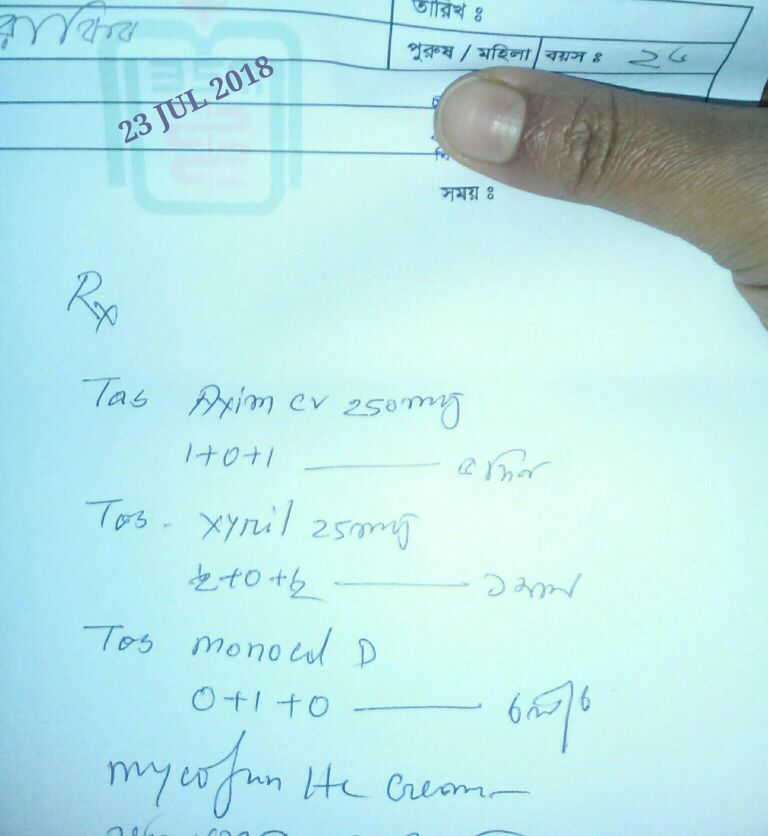 তারিখ ঃ
রাকিব
পুরুষ / মহিলা বয়স ঃ 26
23 JUL 2018
সময় ঃ
Rx
Tab Axim cv 250mg
1+0+1 ——— ৫ দিন
Tab. Xyril 25mg
½+0+½ ——— ১ মাস
Tab monocal D
0+1+0 ———
mycofun Hc cream –